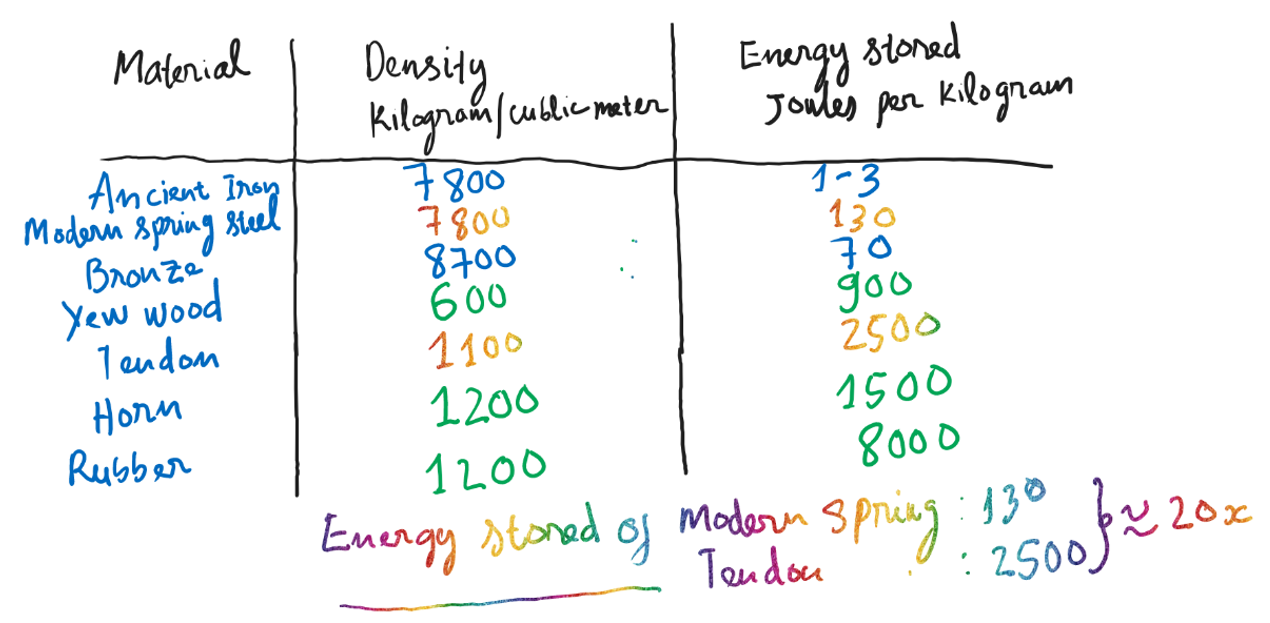 Material Density Energy stored
Kilogram/cublic meter Joules per Kilogram
Ancient Iron 7800 1-3
Modern spring steel 7800 130
Bronze 8700 70
Yew wood 600 900
Tendon 1100 2500
Horn 1200 1500
Rubber 1200 8000
Energy stored of Modern spring : 130 } ≈ 20x
Tendon : 2500